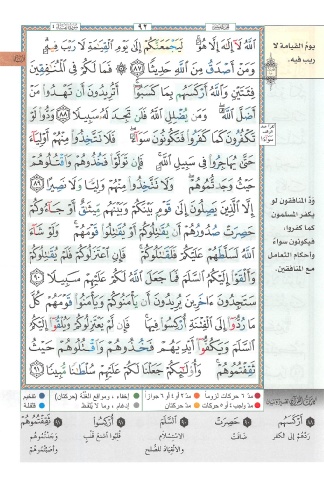 ٩٢
يوم القيامة لا
ريب فيه.
ٱللَّهُ لَآ إِلَٰهَ إِلَّا هُوَۚ لَيَجْمَعَنَّكُمْ إِلَىٰ يَوْمِ ٱلْقِيَٰمَةِ لَا رَيْبَ فِيهِۗ
وَمَنْ أَصْدَقُ مِنَ ٱللَّهِ حَدِيثًا ٨٧ ۞ فَمَا لَكُمْ فِي ٱلْمُنَٰفِقِينَ
فِئَتَيْنِ وَٱللَّهُ أَرْكَسَهُم بِمَا كَسَبُوٓا۟ۚ أَتُرِيدُونَ أَن تَهْدُوا۟ مَنْ
أَضَلَّ ٱللَّهُۖ وَمَن يُضْلِلِ ٱللَّهُ فَلَن تَجِدَ لَهُۥ سَبِيلًا ٨٨ وَدُّوا۟ لَوْ
تَكْفُرُونَ كَمَا كَفَرُوا۟ فَتَكُونُونَ سَوَآءًۖ فَلَا تَتَّخِذُوا۟ مِنْهُمْ أَوْلِيَآءَ
حَتَّىٰ يُهَاجِرُوا۟ فِي سَبِيلِ ٱللَّهِۚ فَإِن تَوَلَّوْا۟ فَخُذُوهُمْ وَٱقْتُلُوهُمْ
حَيْثُ وَجَدتُّمُوهُمْۖ وَلَا تَتَّخِذُوا۟ مِنْهُمْ وَلِيًّا وَلَا نَصِيرًا ٨٩
إِلَّا ٱلَّذِينَ يَصِلُونَ إِلَىٰ قَوْمٍۭ بَيْنَكُمْ وَبَيْنَهُم مِّيثَٰقٌ أَوْ جَآءُوكُمْ
حَصِرَتْ صُدُورُهُمْ أَن يُقَٰتِلُوكُمْ أَوْ يُقَٰتِلُوا۟ قَوْمَهُمْۚ وَلَوْ شَآءَ
ٱللَّهُ لَسَلَّطَهُمْ عَلَيْكُمْ فَلَقَٰتَلُوكُمْۚ فَإِنِ ٱعْتَزَلُوكُمْ فَلَمْ يُقَٰتِلُوكُمْ
وَأَلْقَوْا۟ إِلَيْكُمُ ٱلسَّلَمَ فَمَا جَعَلَ ٱللَّهُ لَكُمْ عَلَيْهِمْ سَبِيلًا ٩٠
سَتَجِدُونَ ءَاخَرِينَ يُرِيدُونَ أَن يَأْمَنُوكُمْ وَيَأْمَنُوا۟ قَوْمَهُمْ كُلَّ
مَا رُدُّوٓا۟ إِلَى ٱلْفِتْنَةِ أُرْكِسُوا۟ فِيهَاۚ فَإِن لَّمْ يَعْتَزِلُوكُمْ وَيُلْقُوٓا۟ إِلَيْكُمُ
ٱلسَّلَمَ وَيَكُفُّوٓا۟ أَيْدِيَهُمْ فَخُذُوهُمْ وَٱقْتُلُوهُمْ حَيْثُ
ثَقِفْتُمُوهُمْۚ وَأُو۟لَٰٓئِكُمْ جَعَلْنَا لَكُمْ عَلَيْهِمْ سُلْطَٰنًا مُّبِينًا ٩١
ودّ المنافقون لو
يكفر المسلمون
كما كفروا،
فيكونون سواءً
وأحكام التعامل
مع المنافقين.
مدّ ٦ حركات لزوماً مدّ ٢ أو ٤ أو ٦ جوازاً إخفاء، ومواقع الغُنَّة (حركتان) تفخيم
مدّ واجب ٤ أو ٥ حركات مدّ حركتان إدغام، وما لا يُلفظ قلقلة
أَرْكَسَهُمْ
ردَّهُمْ إلى الكفر
حَصِرَتْ
ضَاقَتْ
السَّلَمَ
الاستسلامَ
والانقيادَ للصلح
أُرْكِسُوا
قُلِبُوا أشنعَ قَلْبٍ
ثَقِفْتُمُوهُمْ
وَجَدْتُمُوهُمْ